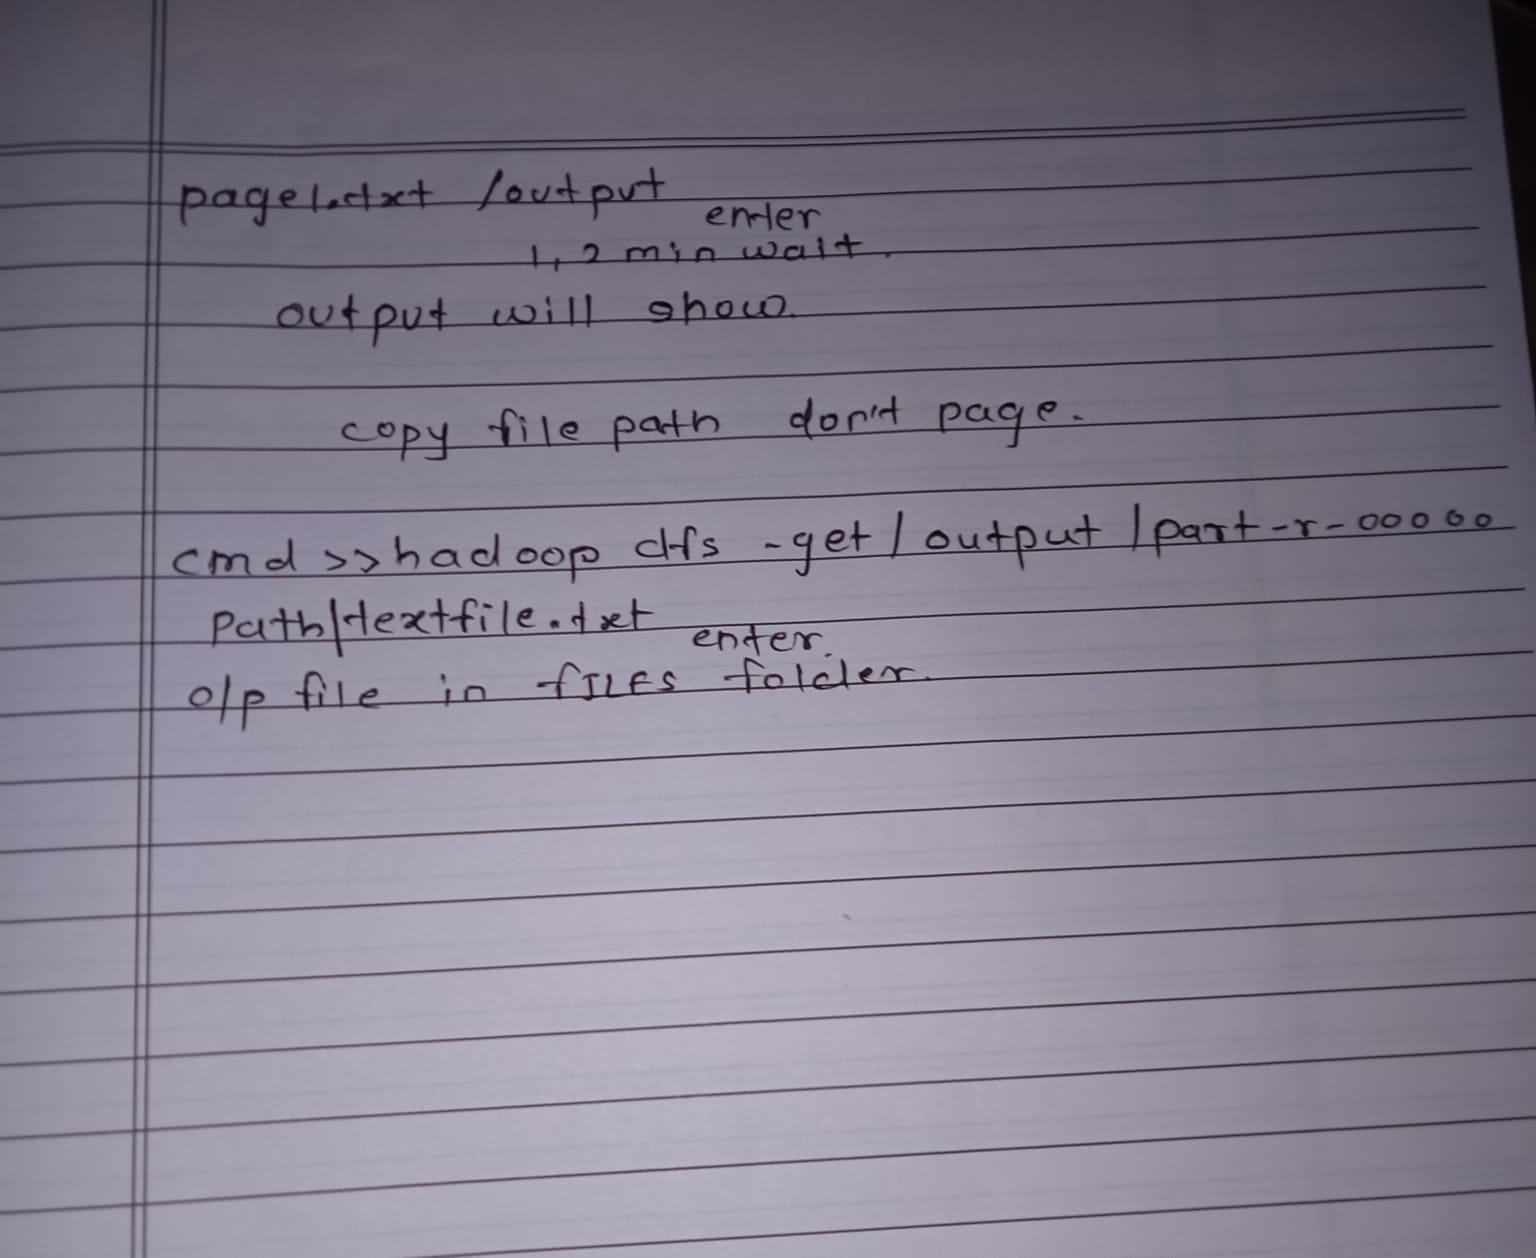 page1.txt /output
enter
1, 2 min wait.
output will show.
copy file path don't page.
cmd >> hadoop dfs -get / output / part-r-00000
path/textfile.txt
enter.
o/p file in fILES folder.